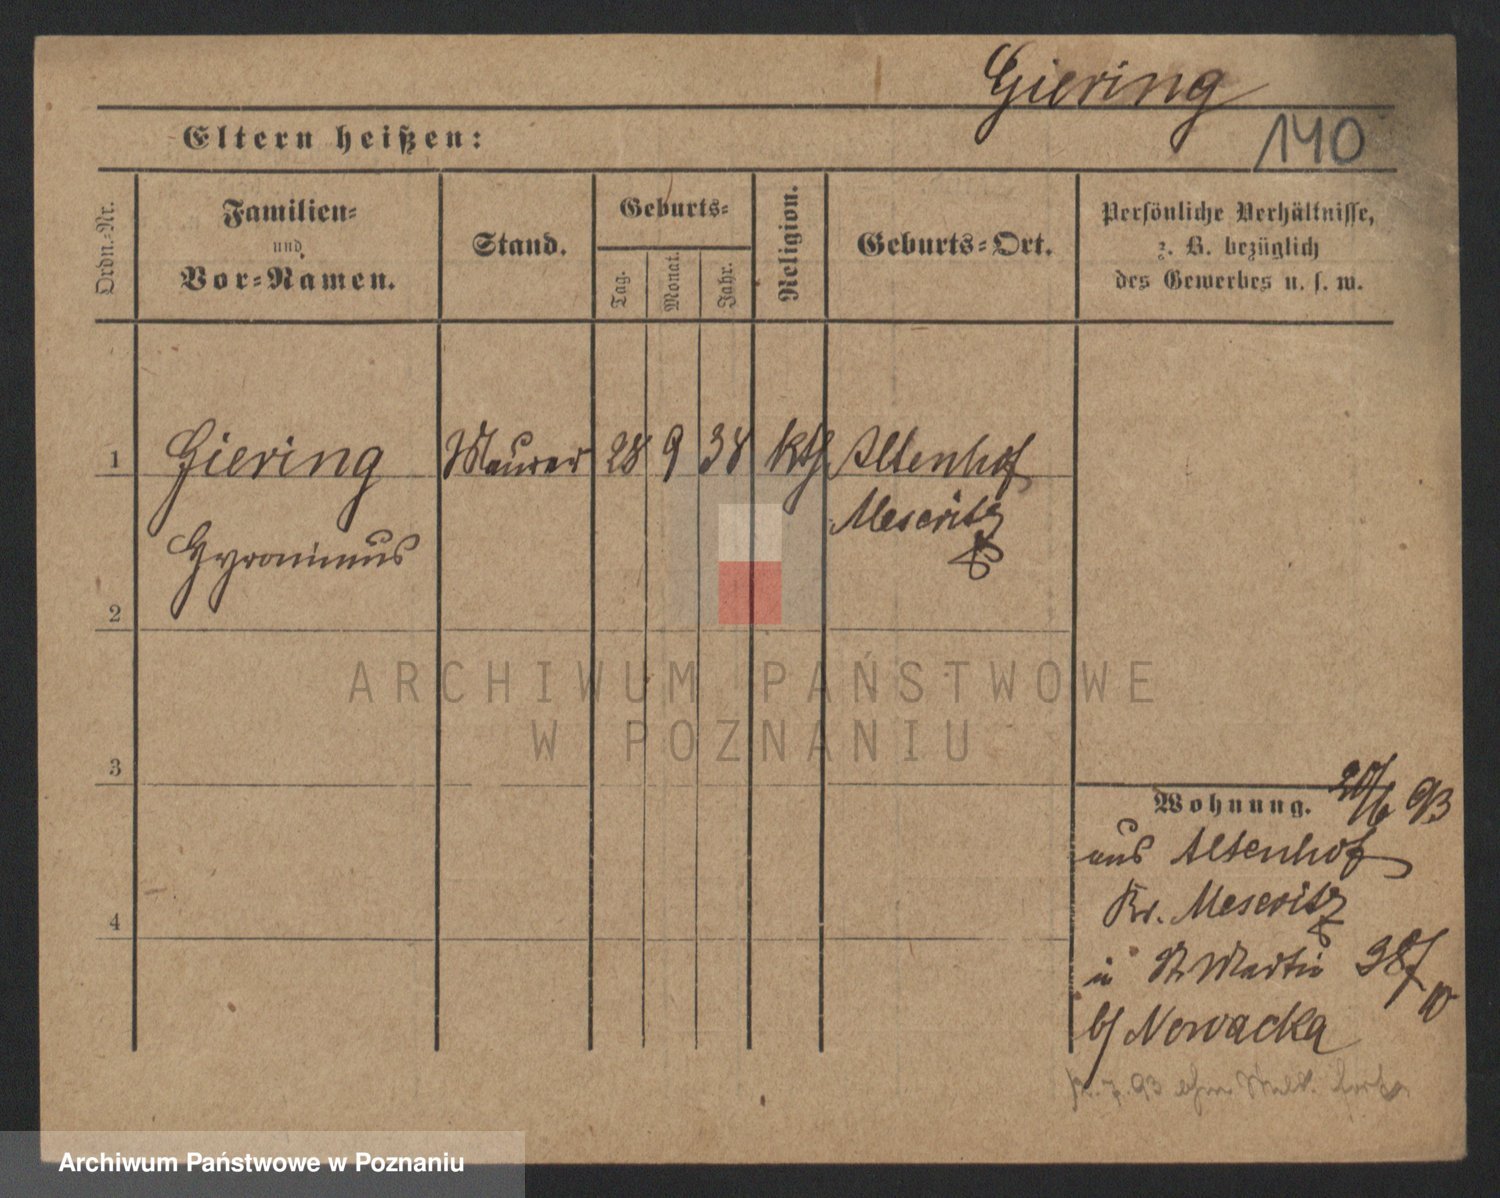 Giering
140
Eltern heißen:
Ordn.-Nr.
Familien-
und
Vor-Namen.
Stand.
Geburts-
Tag.
Monat.
Jahr.
Religion.
Geburts-Ort.
Persönliche Verhältnisse,
z. B. bezüglich
des Gewerbes u. s. w.
1
Giering Maurer 28 9 38 kth Altenhof
Meseritz
Gyronimus
2
ARCHIWUM PAŃSTWOWE
W POZNANIU
3
Wohnung. 20/6 93
aus Altenhof
Kr. Meseritz
4
in St Martin 38/10
b/ Nowacka
7. 93
Archiwum Państwowe w Poznaniu